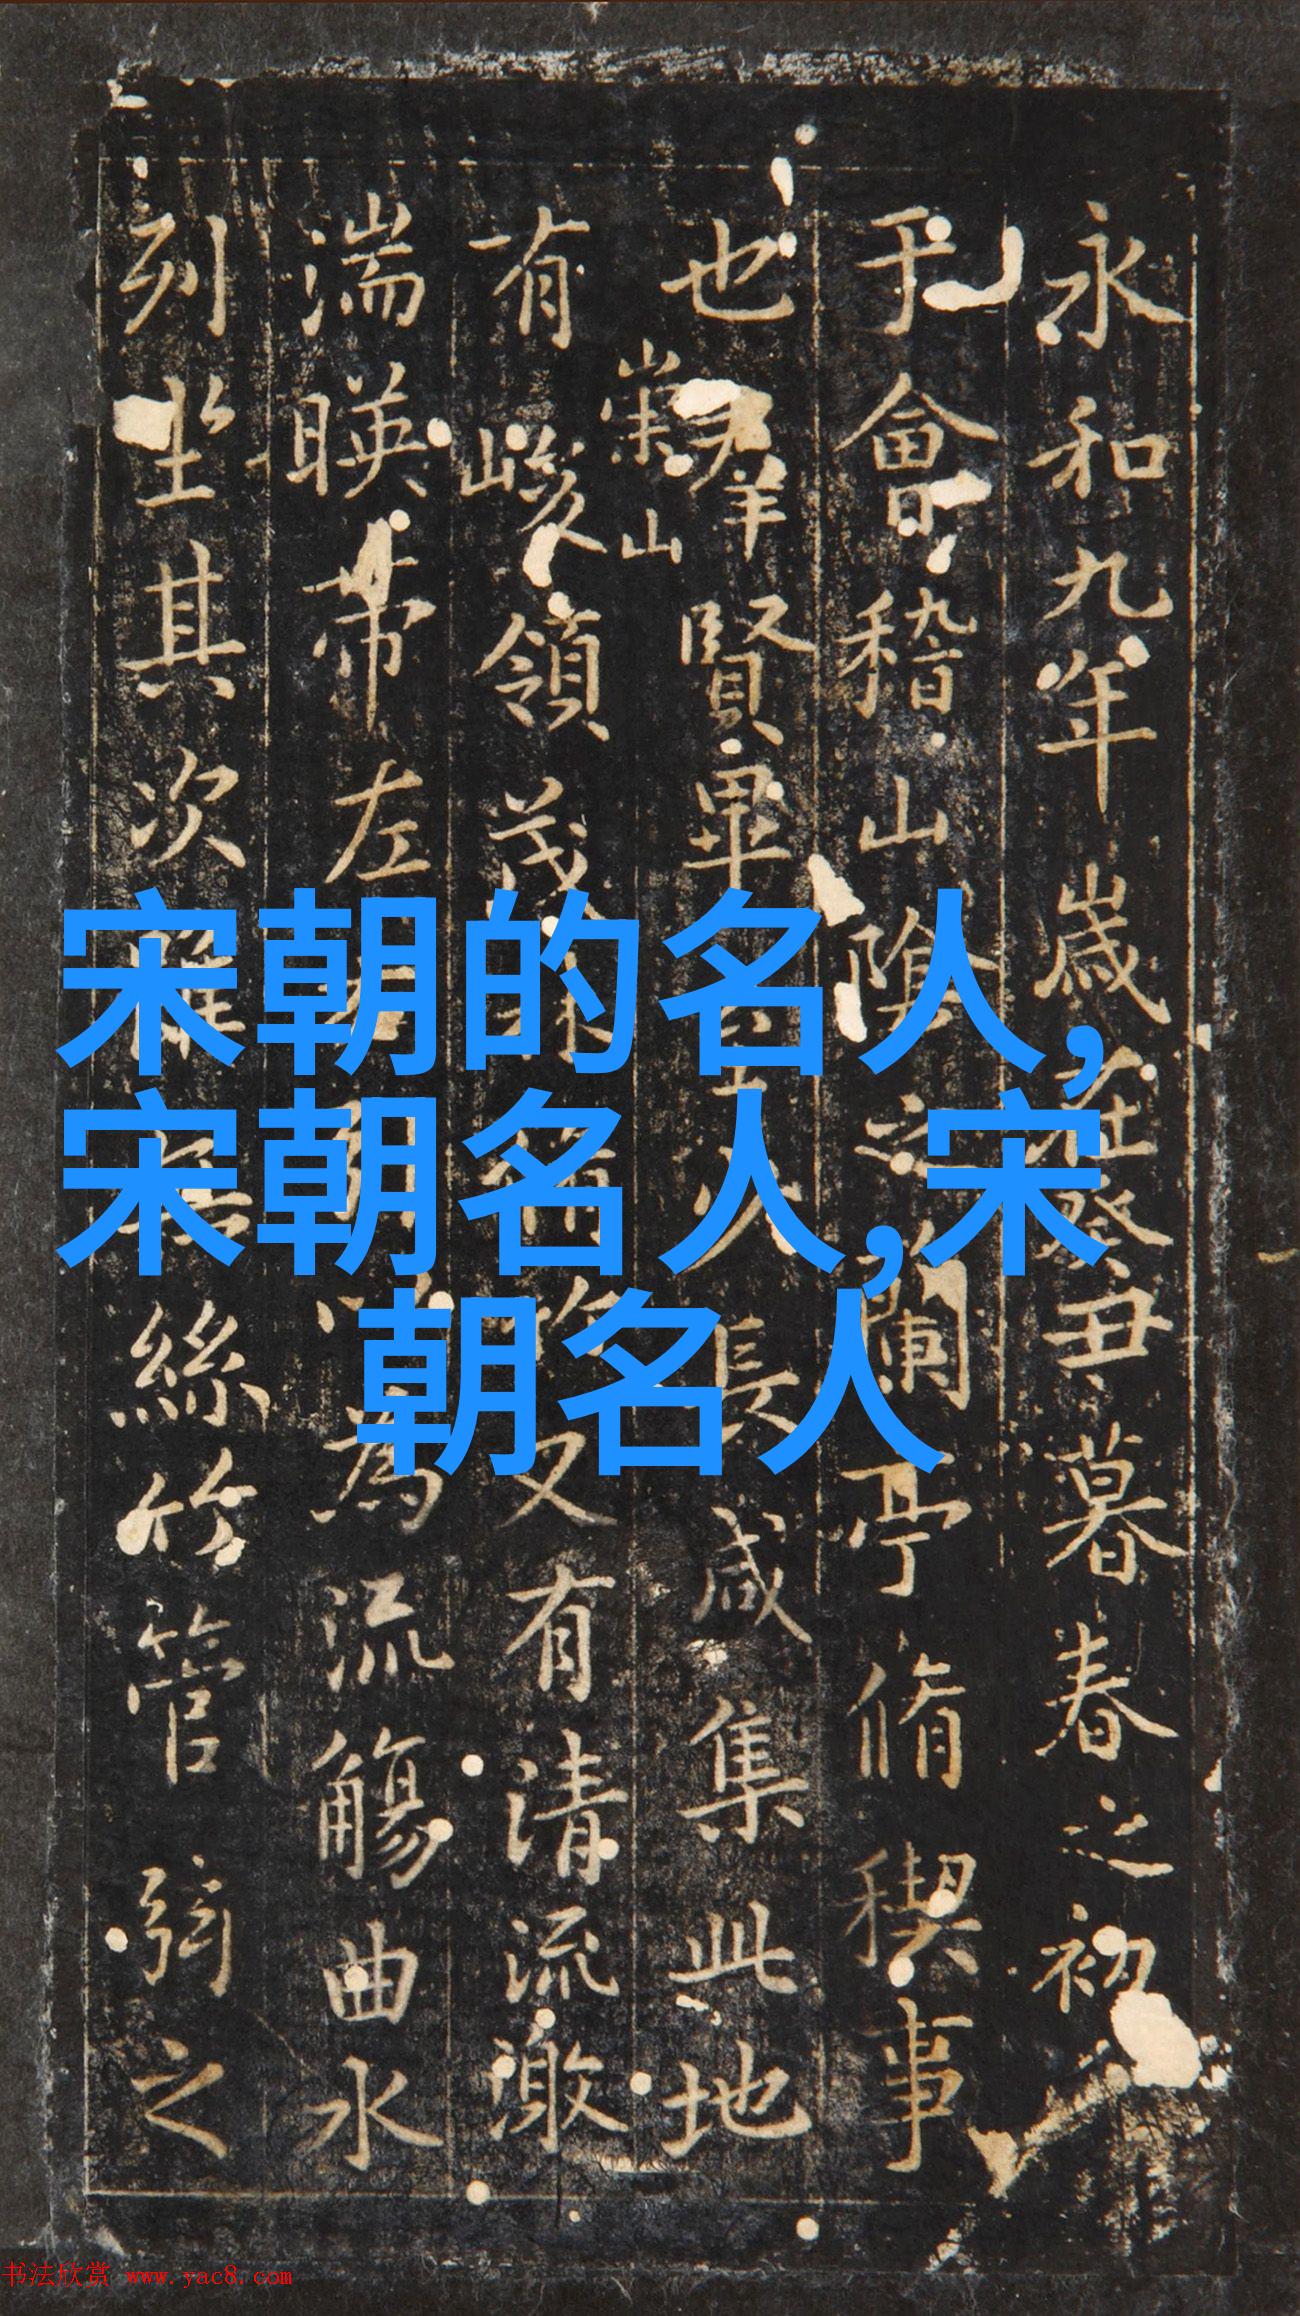 宋朝的名人,
宋朝名人,宋
朝名人
永和九年歲在癸丑暮春之初
于會稽山陰之蘭亭脩稧事
也羣賢畢至少長咸集此地
崇山
有峻領茂林脩竹又有清流激
湍暎帶左右引以為流觴曲水
列坐其次雖無絲竹管弦之
书法欣赏 www.yac8.com